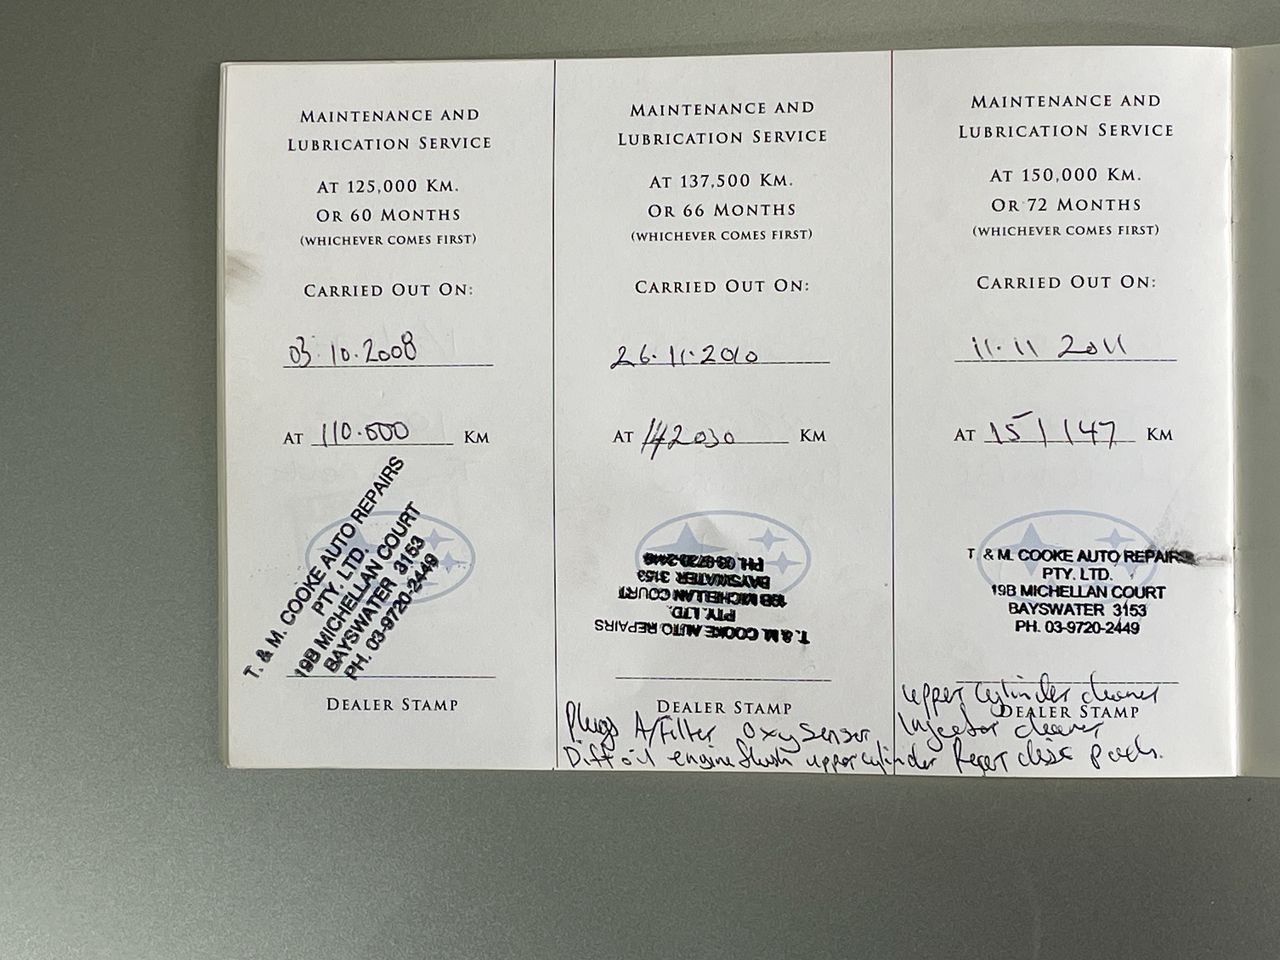 MAINTENANCE AND
LUBRICATION SERVICE
AT 125,000 KM.
OR 60 MONTHS
(WHICHEVER COMES FIRST)
CARRIED OUT ON:
03.10.2008
AT 110.000 KM
T. & M. COOKE AUTO REPAIRS
PTY. LTD.
19B MICHELLAN COURT
BAYSWATER 3153
PH. 03-9720-2449
DEALER STAMP
MAINTENANCE AND
LUBRICATION SERVICE
AT 137,500 KM.
OR 66 MONTHS
(WHICHEVER COMES FIRST)
CARRIED OUT ON:
26.11.2010
AT 142030 KM
T. & M. COOKE AUTO REPAIRS
PTY. LTD.
19B MICHELLAN COURT
BAYSWATER 3153
PH. 03-9720-2449
DEALER STAMP
Plugs A/Filter Oxy Sensor
Diff oil engine flush upper cylinder
MAINTENANCE AND
LUBRICATION SERVICE
AT 150,000 KM.
OR 72 MONTHS
(WHICHEVER COMES FIRST)
CARRIED OUT ON:
11.11 2011
AT 151147 KM
T. & M. COOKE AUTO REPAIRS
PTY. LTD.
19B MICHELLAN COURT
BAYSWATER 3153
PH. 03-9720-2449
upper cylinder cleaner
DEALER STAMP
Injector cleaner
disc pads.